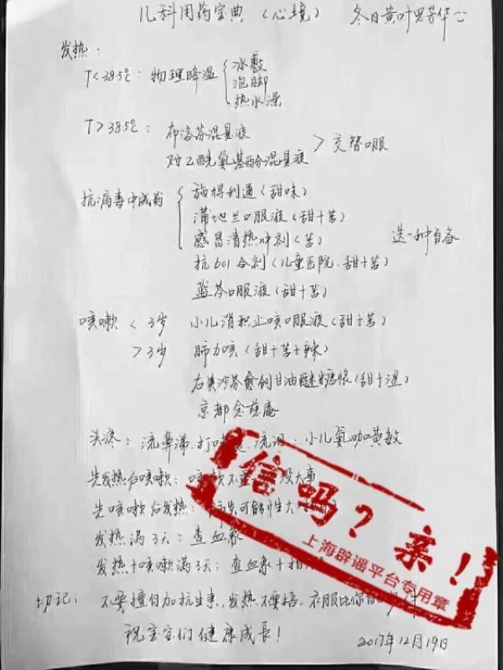 儿科用药宝典（心境） 冬日黄叶
发热：
T<38.5℃：物理降温 冰敷
泡脚
热水澡
T>38.5℃：布洛芬混悬液
对乙酰氨基酚混悬液 > 交替口服
抗病毒中成药 施得利通（甜味）
蒲地兰口服液（甜+苦）
感冒清热冲剂（苦） 选一种自备
抗601合剂（儿童医院、甜+苦）
蓝芩口服液（甜+苦）
咳嗽 <3岁 小儿消积止咳口服液（甜+苦）
>3岁 肺力咳（甜+苦+辣）
右美沙芬愈创甘油醚糖浆（甜+涩）
京都念慈庵
头疼：流鼻涕、打 流泪：小儿氨咖黄敏
先发热后咳嗽：咳嗽不 没大事
先咳嗽后发热： 可能性大
发热满3天：查血象
发热+咳嗽满3天：查血象+
切记：不要擅自加抗生素，发热不要捂、衣服比你
祝宝宝们健康成长！
2017年12月19日
信吗？亲！
上海辟谣平台专用章